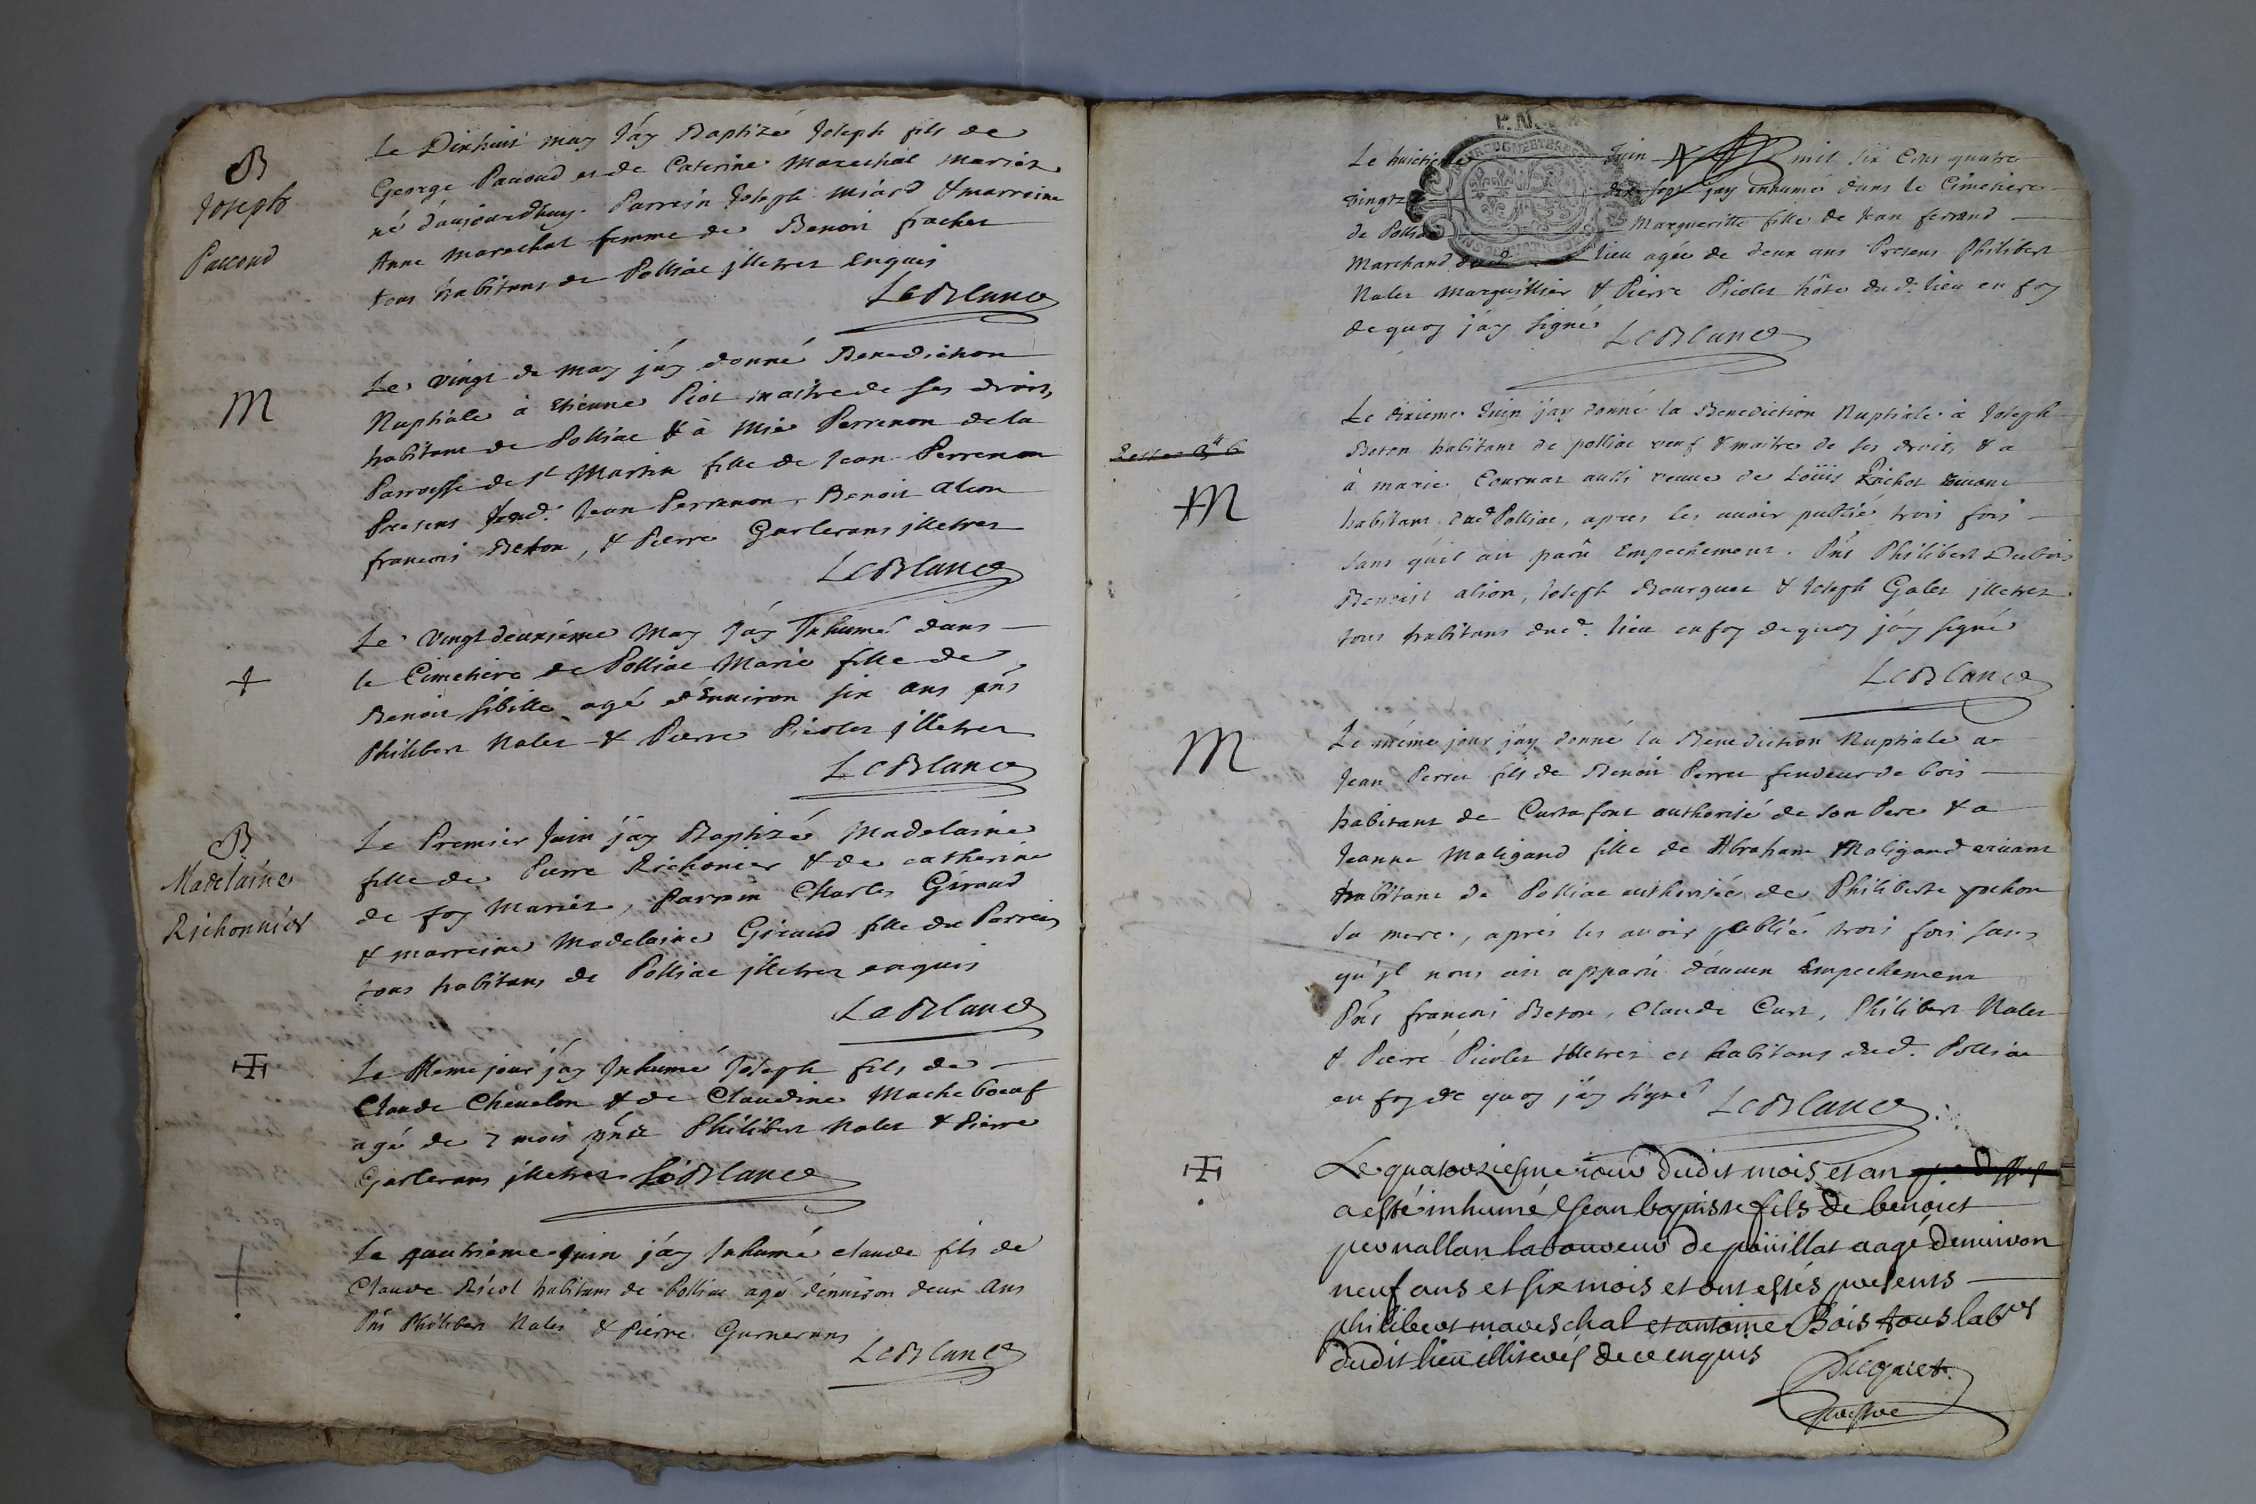 B
Joseph
Pauoud
Le Dixhuit may j'ay Baptizé Joseph fils de
George Pauoud et de Caterine Marechal mariez
né d'aujourdhuy. Parrein Joseph Miard & marreine
Anne Marechal femme de Benoit frachet
tous habitans de Polliac illetrez Enquis
LeBlanc
M
Le vingt de may j'ay donné Benediction
Nuptiale à Etienne Piot maitre de ses droits
habitant de Polliac & à Mie Perrenon de la
Parroesse de St Martin fille de Jean Perrenon
Presens led. Jean Perrenon, Benoit alion
francois Beton, & Pierre Garlerans illetrez
LeBlanc
Le vingt deuxiéme May j'ay Inhumé dans
le Cimetiere de Polliac Marie fille de
Benoit sibille agé d'Environ six ans pñs
Philibert Nalet & Pierre Picolet illetrez
LeBlanc
B
Madelaine
Richonnier
Le Premier Juin j'ay Baptizé Madelaine
fille de Pierre Richonier & de catherine
de foy Mariez, Parrein Charles Giraud
& marreine Madelaine Giraud fille du Parrein
tous habitans de Polliac illetrez enquis
LeBlanc
Le Meme jour j'ay Inhumé Joseph fils de
Claude Cheuelon & de Claudine Macheboeuf
agé de 7 mois pñs Philibert Nalet & Pierre
Garlerans illetrez LeBlanc
Le quatriéme Juin j'ay Inhumé claude fils de
Claude Récol habitans de Polliac agé d'énuiron deux Ans
Pñs Philibert Nalet & Pierre Garnerans
LeBlanc
Le huictieme Juin mil six Cens quatre
vingtz dix sept jay inhumé dans le Cimetiere
de Polliac Margueritte fille de Jean ferrand
Marchand dud. lieu agée de deux ans Presens Philibert
Nalet Marguillier & Pierre Picolet hôte dud. lieu en foy
de quoy j'ay signé LeBlanc
M
Le dixieme Juin j'ay donné la Benediction Nuptiale à Joseph
Beton habitant de polliac veuf & maitre de ses droits & a
à marie Cournat aussi veuue de Loüis Richot viuant
habitant dud Polliac, apres les auoir publié trois fois
sans qu'il ait parû Empechement. Pñs Philibert Dubois
Benoist alion, Joseph Bourguet & Joseph Galet illetrez
tous habitans dud. lieu en foy de quoy j'ay signé
LeBlanc
M
Le méme jour jay donné la Benediction Nuptiale a
Jean Perret fils de Benoit Perret fendeur de bois
habitant de Curtafont authorisé de son Pere & a
Jeanne Maligand fille de Abraham Maligand viuant
habitant de Polliac authorisée de Philiberte pochon
sa mere, aprés les auoir publié trois fois sans
qu'jl nous ait apparû d'aucun Empechement
Pñs francois Beton, Claude Curt, Philibert Nalet
& Pierre Picolet illetrez et habitans dud. Polliac
en foy de quoy j'ay signé LeBlanc
Le quatorziesme iour dudit mois et an
a esté inhumé Jean baptiste fils de benoist
peruallan laboureur de poüillat aagé denuiron
neuf ans et six mois et ont estés presents
philibert mareschal et antoine Bois tous labrs
dudit lieu illiterés de ce enquis
Picquet
prestre